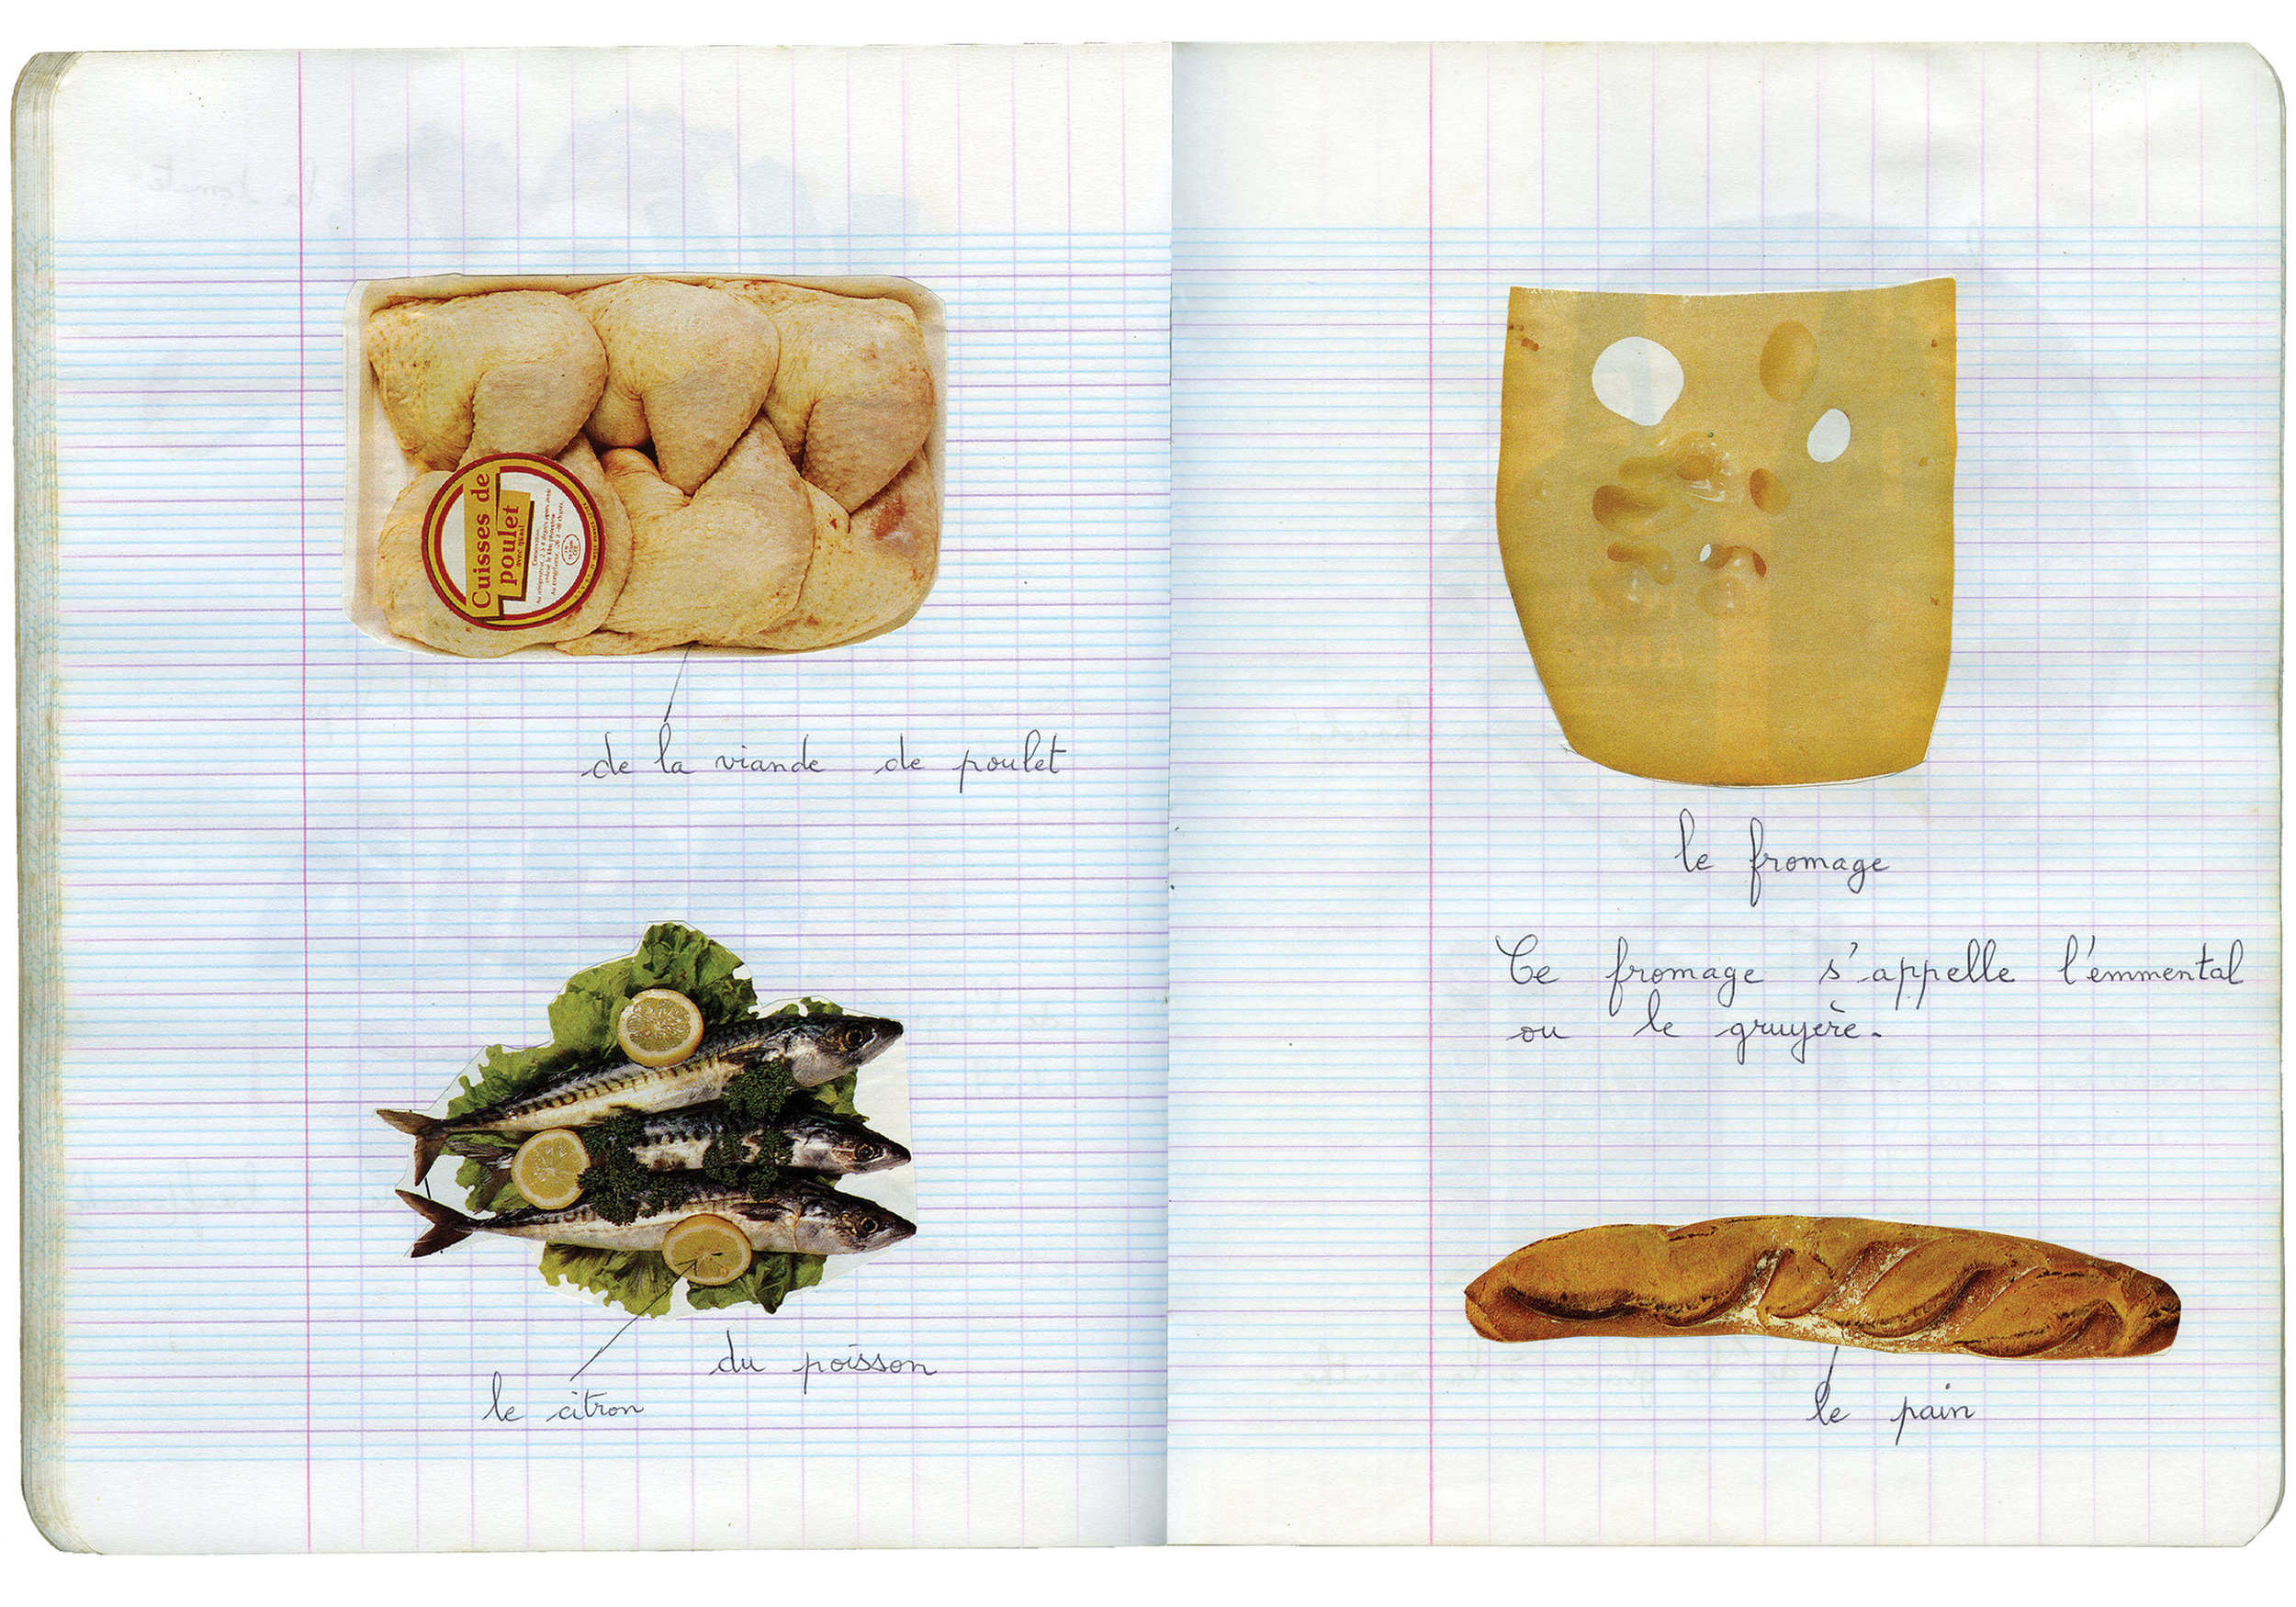 Cuisses de
poulet
de la viande de poulet
du poisson
le citron
le fromage
Ce fromage s'appelle l'emmental
ou le gruyère.
le pain